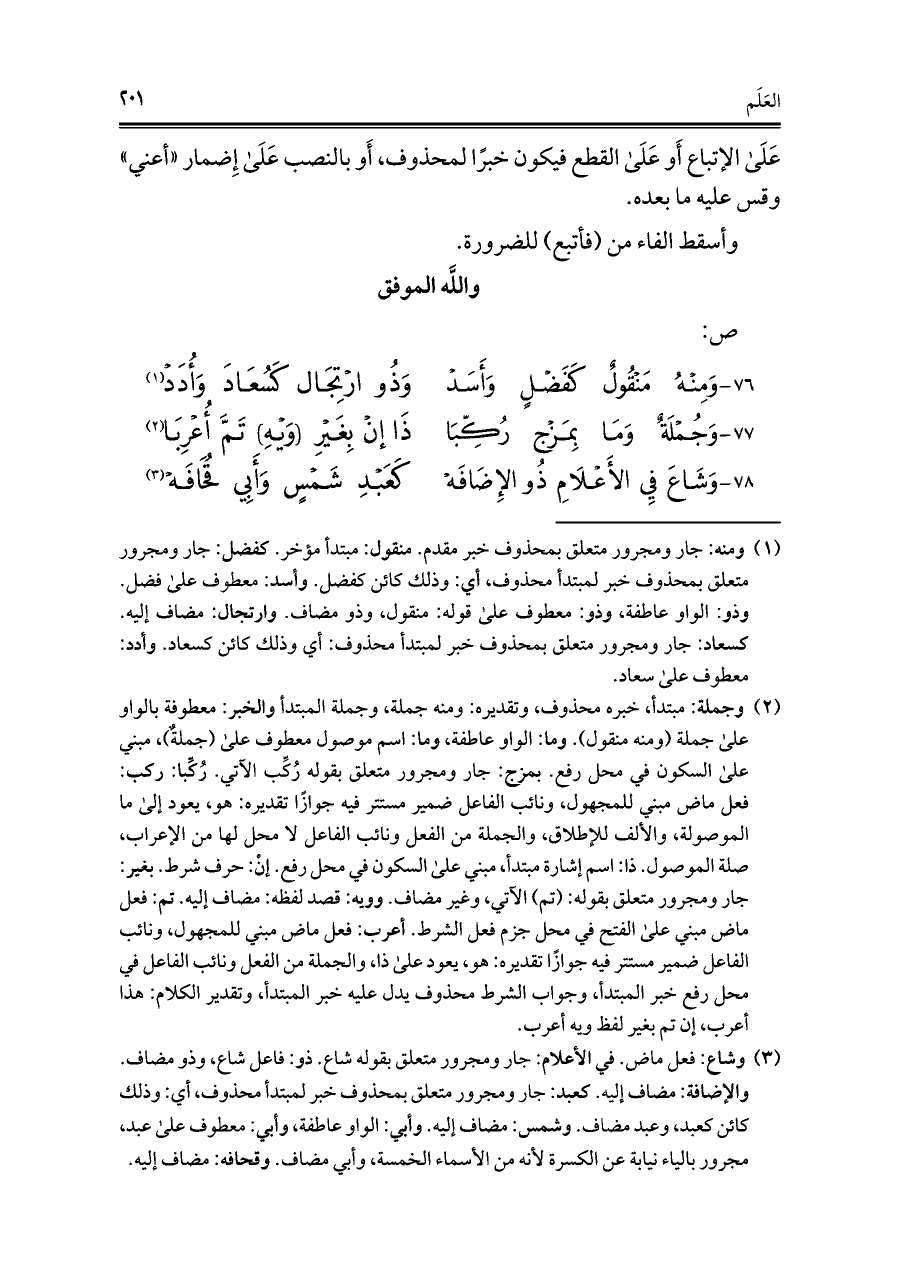 العَلَم ٢٠١
عَلَىٰ الإتباع أَو عَلَىٰ القطع فيكون خبرًا لمحذوف، أَو بالنصب عَلَىٰ إِضمار «أعني»
وقس عليه ما بعده.
وأسقط الفاء من (فأتبع) للضرورة.
واللَّه الموفق
ص:
٧٦- وَمِنْهُ مَنْقُولٌ كَفَضْلٍ وَأَسَدْ وَذُو ارْتِجَال كَسُعَادَ وَأُدَدْ(١)
٧٧- وَجُمْلَةٌ وَمَا بِمَزْجٍ رُكِّبَا ذَا إنْ بِغَيْرِ (وَيْهِ) تَمَّ أُعْرِبَا(٢)
٧٨- وَشَاعَ فِي الأَعْلَامِ ذُو الإِضَافَهْ كَعَبْدِ شَمْسٍ وَأَبِي قُحَافَهْ(٣)
(١) ومنه: جار ومجرور متعلق بمحذوف خبر مقدم. منقول: مبتدأ مؤخر. كفضل: جار ومجرور
متعلق بمحذوف خبر لمبتدأ محذوف، أي: وذلك كائن كفضل. وأسد: معطوف علىٰ فضل.
وذو: الواو عاطفة، وذو: معطوف علىٰ قوله: منقول، وذو مضاف. وارتجال: مضاف إليه.
كسعاد: جار ومجرور متعلق بمحذوف خبر لمبتدأ محذوف: أي وذلك كائن كسعاد. وأدد:
معطوف علىٰ سعاد.
(٢) وجملة: مبتدأ، خبره محذوف، وتقديره: ومنه جملة، وجملة المبتدأ والخبر: معطوفة بالواو
علىٰ جملة (ومنه منقول). وما: الواو عاطفة، وما: اسم موصول معطوف علىٰ (جملةٌ)، مبني
علىٰ السكون في محل رفع. بمزج: جار ومجرور متعلق بقوله رُكِّب الآتي. رُكِّبا: ركب:
فعل ماض مبني للمجهول، ونائب الفاعل ضمير مستتر فيه جوازًا تقديره: هو، يعود إلىٰ ما
الموصولة، والألف للإطلاق، والجملة من الفعل ونائب الفاعل لا محل لها من الإعراب،
صلة الموصول. ذا: اسم إشارة مبتدأ، مبني علىٰ السكون في محل رفع. إنْ: حرف شرط. بغير:
جار ومجرور متعلق بقوله: (تم) الآتي، وغير مضاف. وويه: قصد لفظه: مضاف إليه. تم: فعل
ماض مبني علىٰ الفتح في محل جزم فعل الشرط. أعرب: فعل ماض مبني للمجهول، ونائب
الفاعل ضمير مستتر فيه جوازًا تقديره: هو، يعود علىٰ ذا، والجملة من الفعل ونائب الفاعل في
محل رفع خبر المبتدأ، وجواب الشرط محذوف يدل عليه خبر المبتدأ، وتقدير الكلام: هذا
أعرب، إن تم بغير لفظ ويه أعرب.
(٣) وشاع: فعل ماض. في الأعلام: جار ومجرور متعلق بقوله شاع. ذو: فاعل شاع، وذو مضاف.
والإضافة: مضاف إليه. كعبد: جار ومجرور متعلق بمحذوف خبر لمبتدأ محذوف، أي: وذلك
كائن كعبد، وعبد مضاف. وشمس: مضاف إليه. وأبي: الواو عاطفة، وأبي: معطوف علىٰ عبد،
مجرور بالياء نيابة عن الكسرة لأنه من الأسماء الخمسة، وأبي مضاف. وقحافه: مضاف إليه.